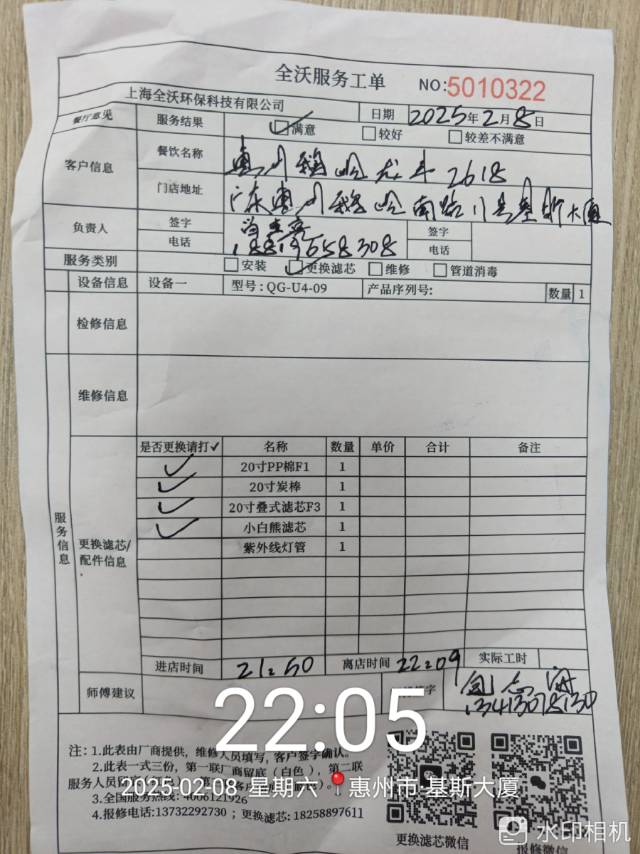 全沃服务工单 NO:5010322
上海全沃环保科技有限公司 日期 2025年2月8日
餐厅意见 服务结果 ☑满意 □较好 □较差不满意
客户信息 餐饮名称 2618
门店地址 广东惠州 南路11号基斯大厦
负责人 签字 签字
电话 18819558308 电话
服务类别 □安装 ☑更换滤芯 □维修 □管道消毒
设备信息 设备一 型号:QG-U4-09 产品序列号: 数量 1
检修信息
维修信息
服务信息
更换滤芯/配件信息
是否更换请打✓ 名称 数量 单价 合计 备注
✓ 20寸PP棉F1 1
✓ 20寸炭棒 1
✓ 20寸叠式滤芯F3 1
✓ 小白熊滤芯 1
紫外线灯管 1
进店时间 21:50 离店时间 22:09 实际工时
师傅建议 签字
22:05
注: 1.此表由厂商提供，维修人员填写，客户签字确认。
2.此表一式三份，第一联厂商留底（白色）、第二联
服务人员
2025-02-08 星期六 惠州市·基斯大厦
3.全国服务热线: 4006121926
4.报修电话:13732292730 ; 更换滤芯: 18258897611
更换滤芯微信 报修微信
水印相机